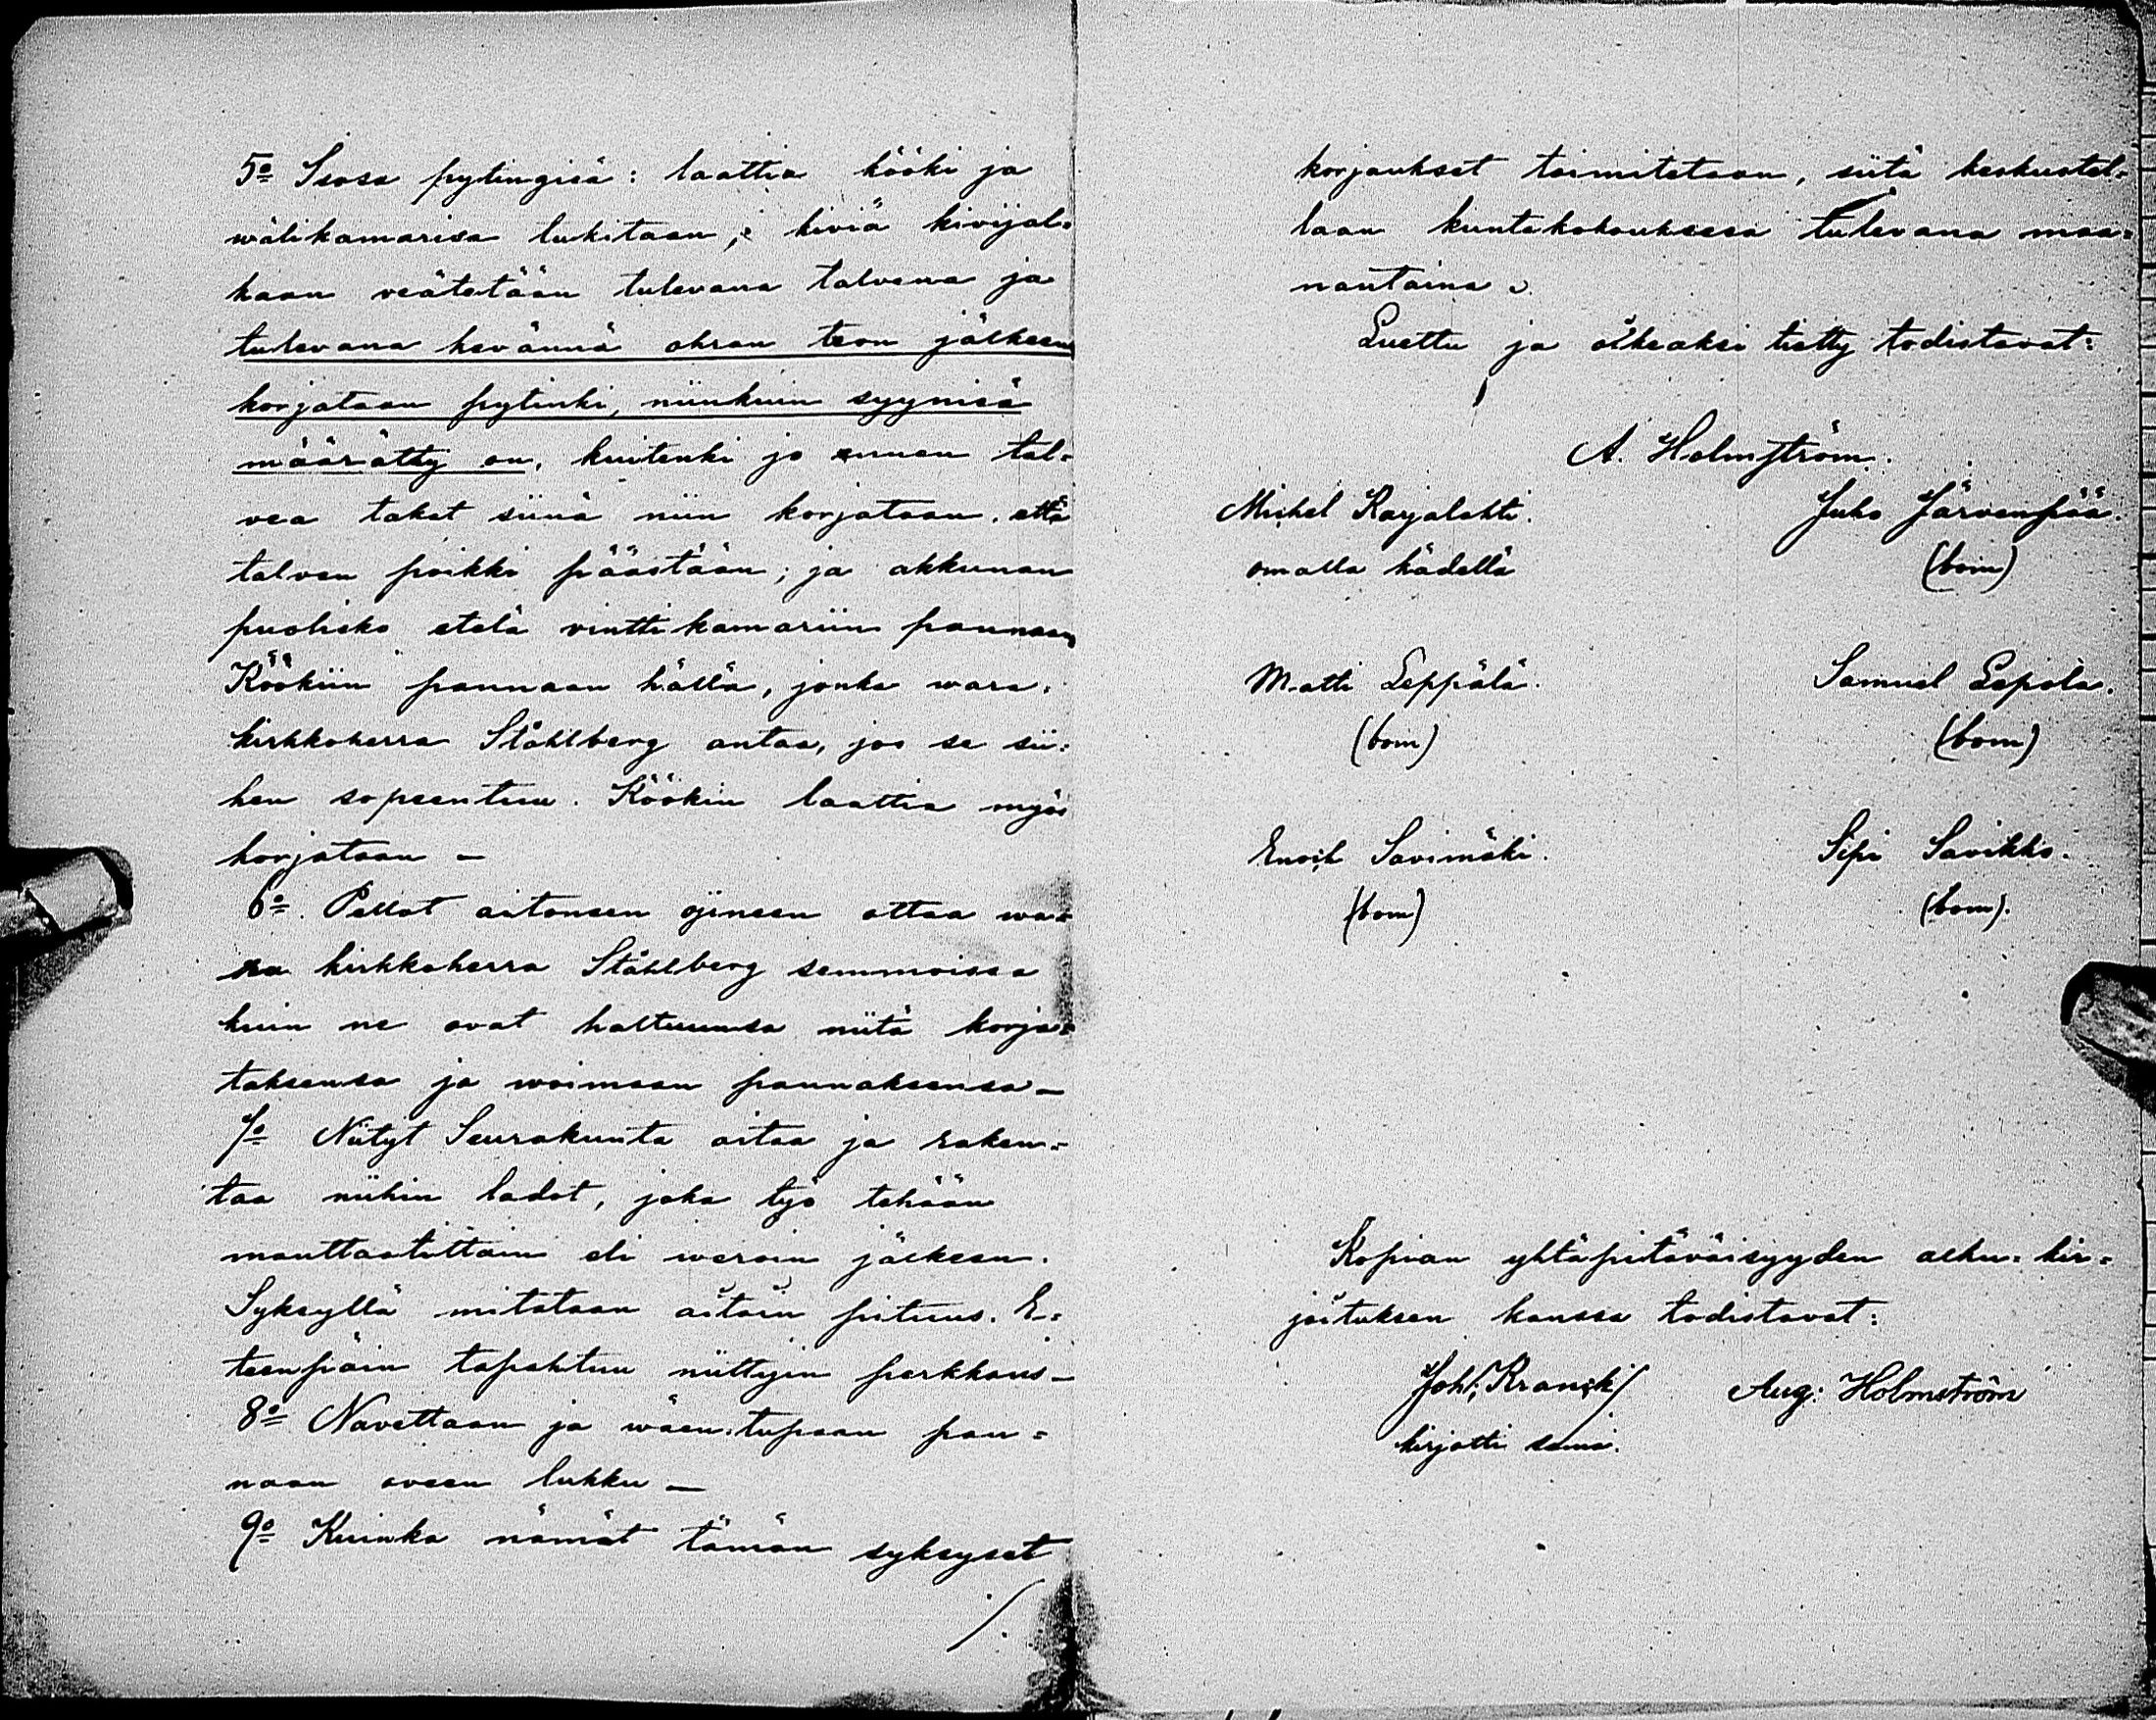 5º Isosa pytingisä: laattia kööki ja
wälikamarisa lukitaan, kiviä kivijal=
kaan veätetään tulevana talvena ja
tulevana kevännä ohran teon jälkeen
korjataan pytinki, niinkuin syynisä
määrätty on, kuitenki jo ennen tal=
vea takat siinä niin korjataan, että
talven poikki päästään; ja akkunan
puolisko etelä vinttikamariin pannaan
Köökiin pannaan hälla, jonka wara=
kirkkoherra Ståhlberg antaa, jos se sii=
hen sopeentuu. Köökin laattia myös
korjataan –
6º. Pellot aitoneen ojineen ottaa wa=
ra kirkkoherra Ståhlberg semmoissa
kuin ne ovat haltuunsa niitä korja=
taksensa ja woimaan pannaksensa –
7º Niityt Seurakunta aitaa ja raken=
taa niihin ladot, joka työ tehään
manttaalittain eli weroin jälkeen.
Syksyllä mitataan aitain pituus. E=
teenpäin tapahtuu niittyin perkkaus –
8º Navettaan ja wäen-tupaan pan=
naan oveen lukku –
9º Kuinka nämät tämän syksyset
/.
korjaukset toimitetaan, siitä keskustel=
laan kuntakokouksessa tulevana maa=
nantaina.
Luettu ja oikeaksi tietty todistavat:
A. Holmström.
Michel Karjalahti. Juho Järvenpää.
omalla kädellä (bom)
Matti Leppälä. Samuel Lepola.
(bom) (bom)
Enoch Savimäki. Sipi Savikko.
(bom) (bom).
Kopian yhtäpitäväisyyden alku=kir=
joituksen kanssa todistavat:
Joh. Kranck/ Aug: Holmström
kirjotti sama.